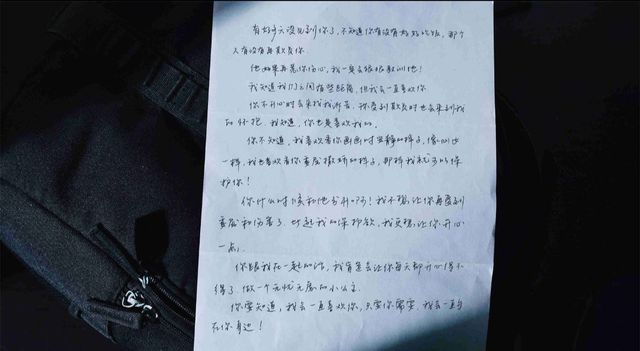 有好多天没见到你了，不知道你有没有好好吃饭，那个
人有没有再欺负你。
他如果再惹你伤心，我一定会狠狠教训他！
我知道我们之间有些距离，但我会一直喜欢你
你不开心时会来找我诉苦，你受到欺负时也会来到我
的怀抱，我知道，你也是喜欢我的。
你不知道，我喜欢看你画画时安静的样子，像
一样，我也喜欢看你委屈撒娇的样子，那样我就可以保
护你！
你什么时候和他分开啊！我不想让你再受到
委屈和伤害了，比起我的保护欲，我更想让你开心
一点。
你跟我在一起的话，我肯定会让你每天都开心得不
得了，做一个无忧无虑的小公主。
你要知道，我会一直喜欢你，只要你需要，我会一直
在你身边！